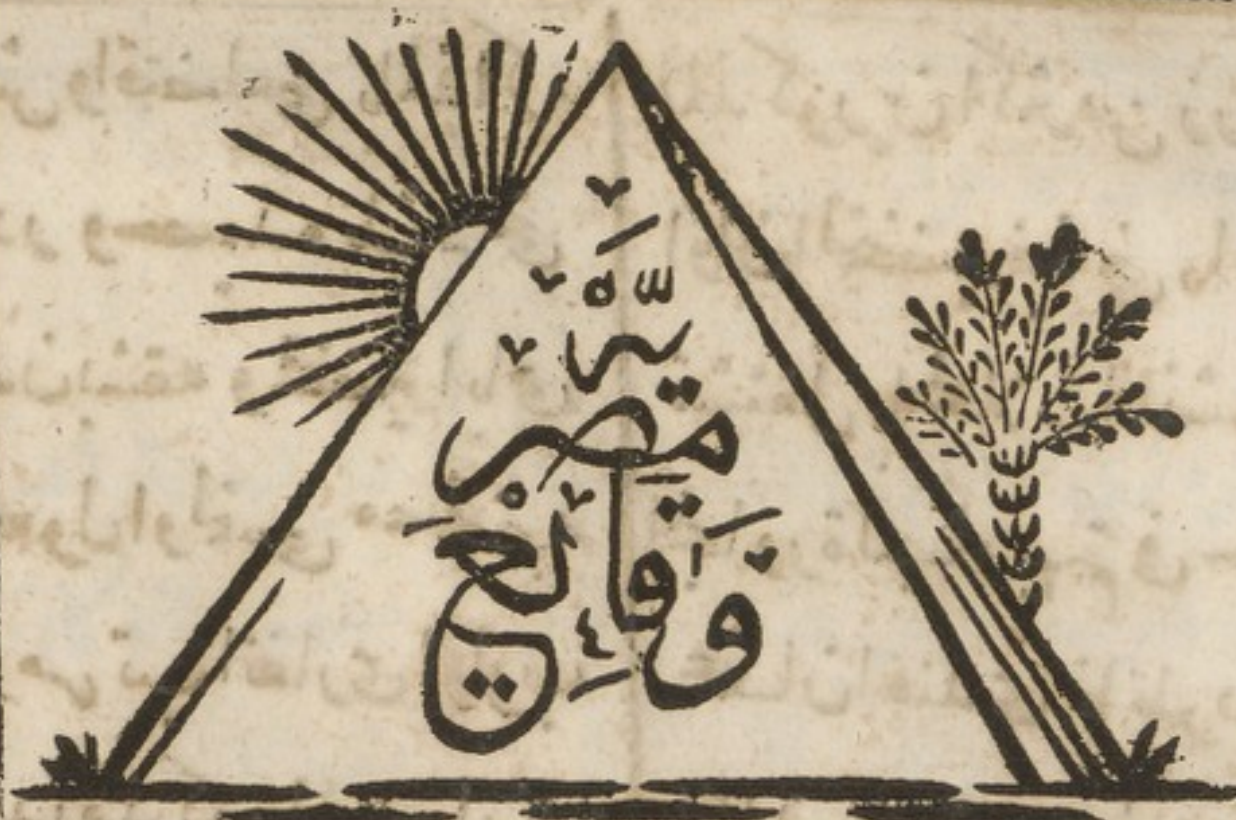 وَقَائِع
مِصْرِيَّه